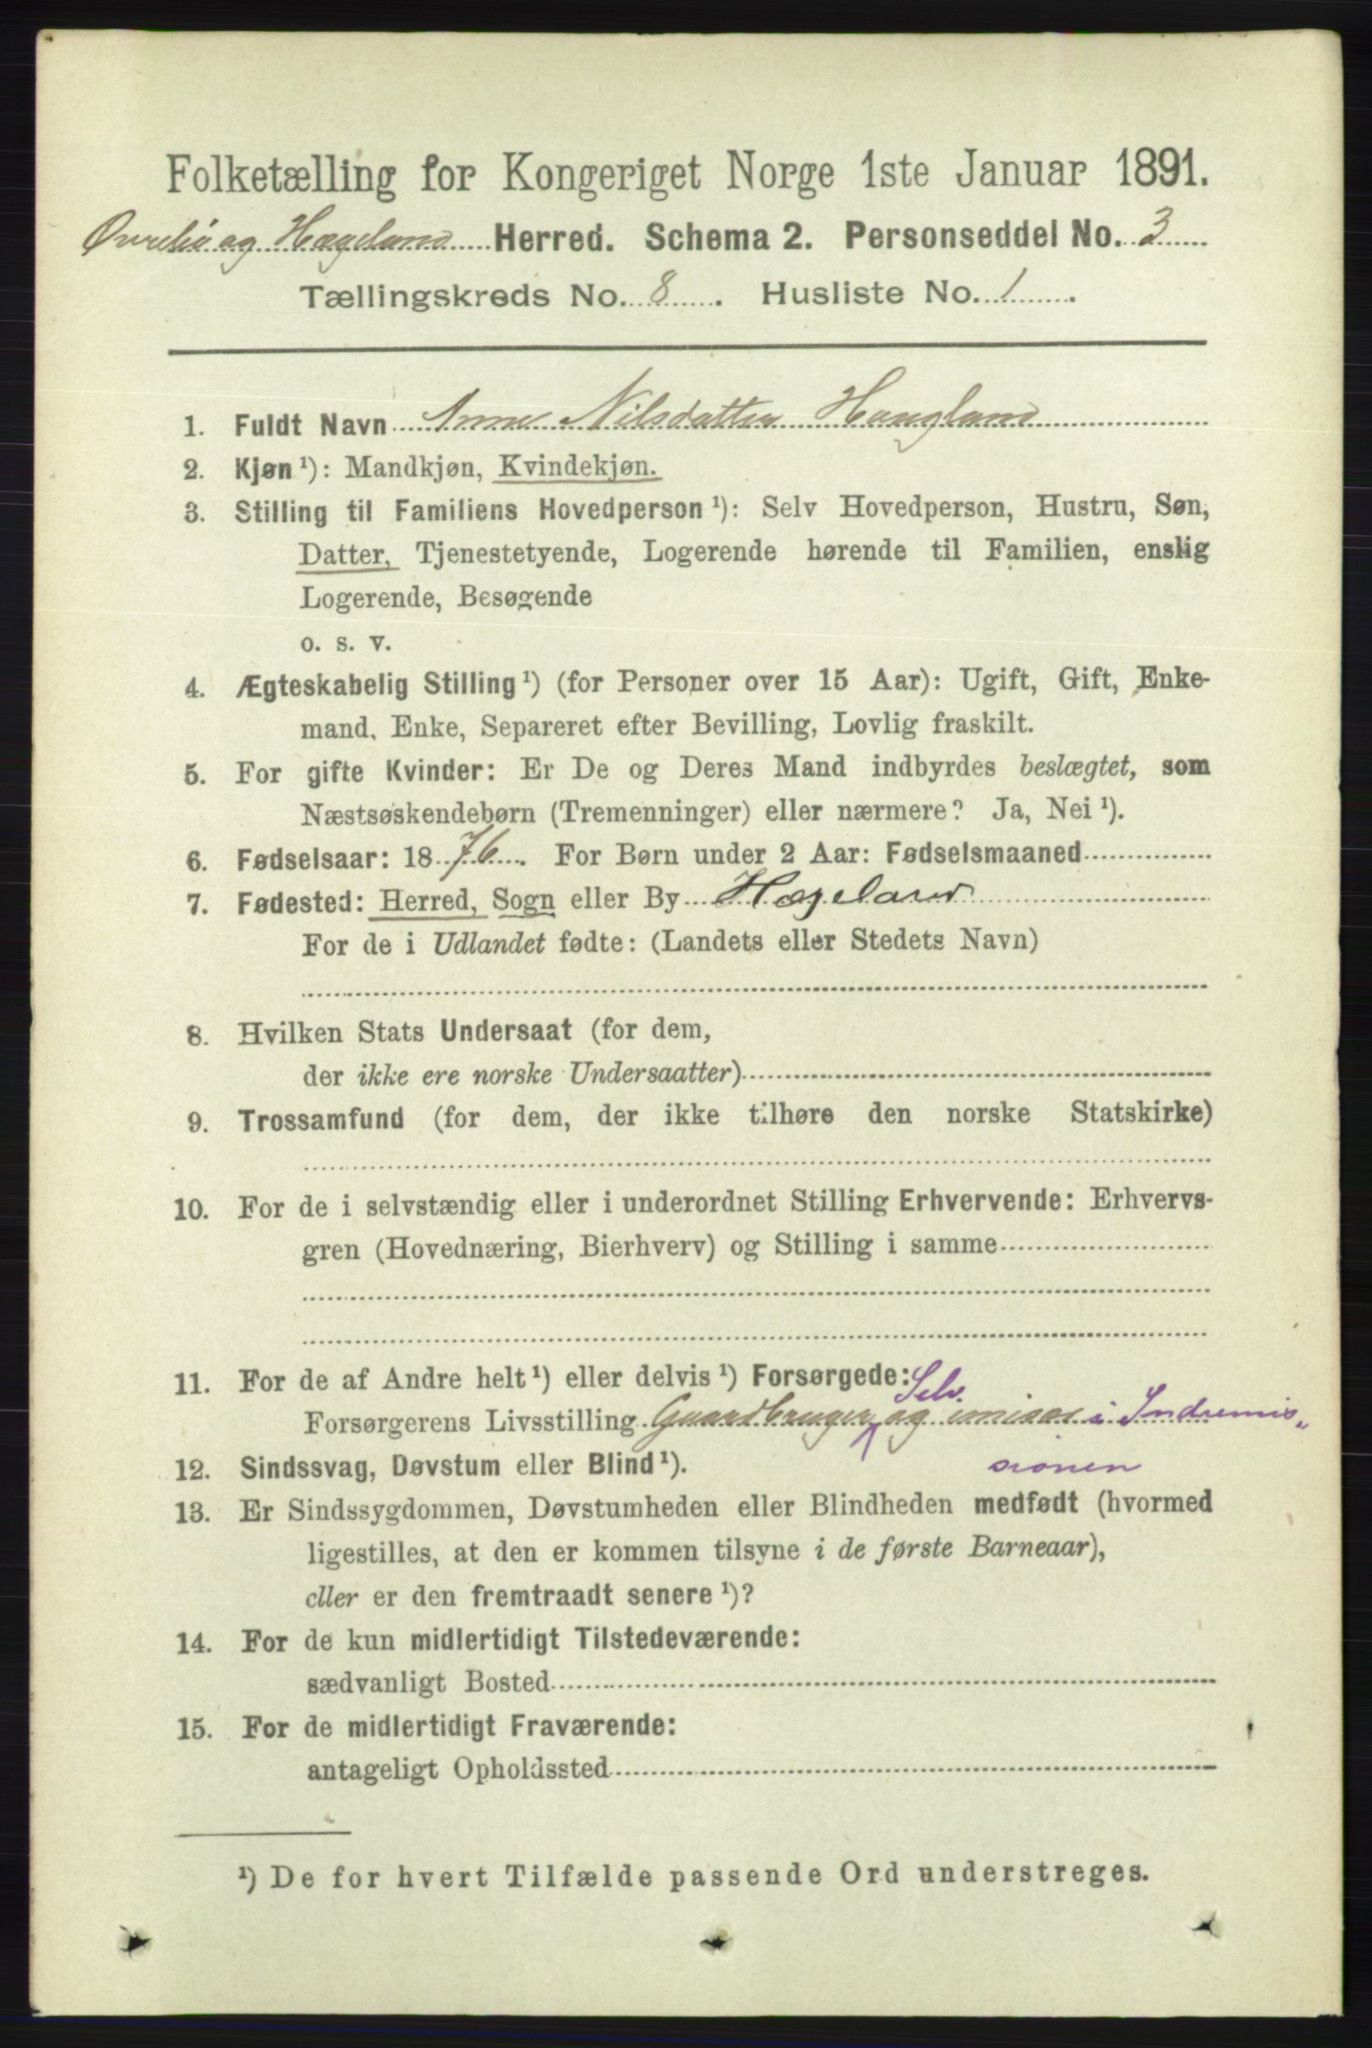 Folketælling for Kongeriget Norge 1ste Januar 1891.
Øvrebø og Hægeland Herred. Schema 2. Personseddel No. 3
Tællingskreds No. 8. Husliste No. 1.
1. Fuldt Navn Anne Nilsdatter Haugland
2. Kjøn ¹): Mandkjøn, Kvindekjøn.
3. Stilling til Familiens Hovedperson ¹): Selv Hovedperson, Hustru, Søn,
Datter, Tjenestetyende, Logerende hørende til Familien, enslig
Logerende, Besøgende
o. s. v.
4. Ægteskabelig Stilling ¹) (for Personer over 15 Aar): Ugift, Gift, Enke-
mand, Enke, Separeret efter Bevilling, Lovlig fraskilt.
5. For gifte Kvinder: Er De og Deres Mand indbyrdes beslægtet, som
Næstsøskendebørn (Tremenninger) eller nærmere? Ja, Nei ¹).
6. Fødselsaar: 1876. For Børn under 2 Aar: Fødselsmaaned
7. Fødested: Herred, Sogn eller By Hægeland
For de i Udlandet fødte: (Landets eller Stedets Navn)
8. Hvilken Stats Undersaat (for dem,
der ikke ere norske Undersaatter)
9. Trossamfund (for dem, der ikke tilhøre den norske Statskirke)
10. For de i selvstændig eller i underordnet Stilling Erhvervende: Erhvervs-
gren (Hovednæring, Bierhverv) og Stilling i samme
11. For de af Andre helt ¹) eller delvis ¹) Forsørgede: Selv.
Forsørgerens Livsstilling Gaardbruger og i Indremis„
sionen
12. Sindssvag, Døvstum eller Blind ¹).
13. Er Sindssygdommen, Døvstumheden eller Blindheden medfødt (hvormed
ligestilles, at den er kommen tilsyne i de første Barneaar),
eller er den fremtraadt senere ¹)?
14. For de kun midlertidigt Tilstedeværende:
sædvanligt Bosted
15. For de midlertidigt Fraværende:
antageligt Opholdssted
¹) De for hvert Tilfælde passende Ord understreges.